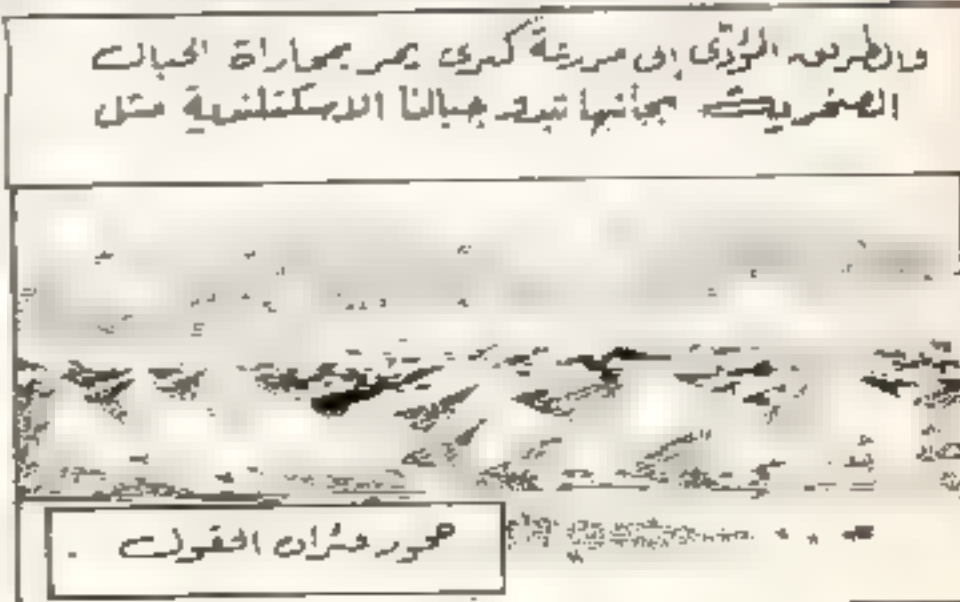 والطريق المؤدّى إلى مدينة كبرى يمر بمحاذاة الجبال
الصخرية بجانبها تبدو جبالنا الاسكتلندية مثل
جحور فئران الحقول .